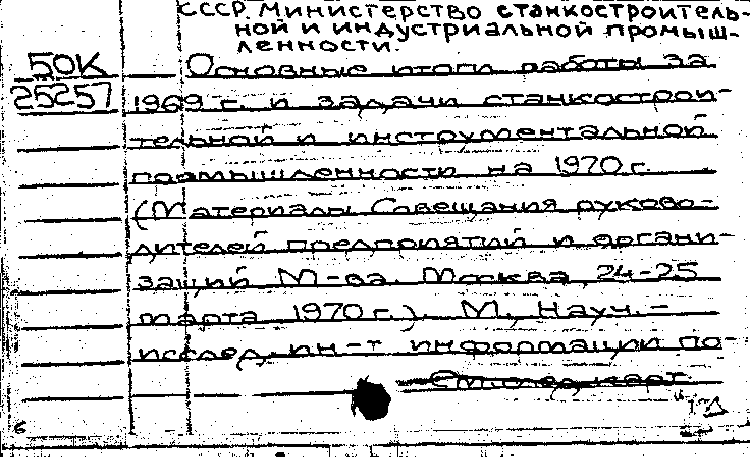 СССР. Министерство станкостроитель-
ной и индустриальной промыш-
ленности.
50К Основные итоги работы за
25257 1969 г. и задачи станкострои-
тельной и инструментальной
промышленности на 1970 г.
(Материалы Совещания руково-
дителей предприятий и органи-
заций М-ва. Москва, 24-25
марта 1970 г.). М., Науч.-
исслед. ин-т информации по
См. след. карт.
6